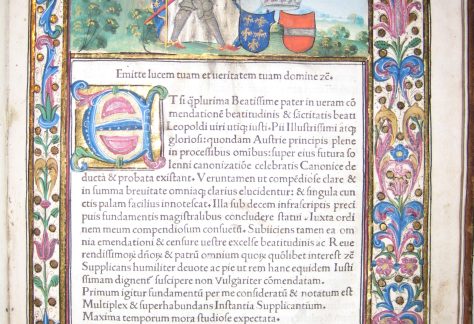 Emitte lucem tuam et veritatem tuam domine zẽ.
ETsi q̃plurima Beatissime pater in veram cõ
mendationẽ beatitudinis & sacritatis beati
Leopoldi uiri utiq; iusti. Pii Illustrissimi atq;
gloriosi: quondam Austrie principis plene
in processibus omibus: super eius futura so
lenni canonizatiõe celebratis Canonice de
ducta & probata existant. Veruntamen ut compẽdiose clare &
in summa breuitate omniaq; clarius elucidentur: & singula cun
ctis palam facilius innotescat. Illa sub decem infrascriptis preci
puis fundamentis magistralibus concludere statui. Iuxta ordi
nem meum compendiosum consuetũ. Subiiciens tamen ea om
nia emendationi & censure vestre excelse beatitudinis ac Reue
rendissimoꝝ dñoꝝ & patrũ omnium quoꝝ quolibet interest zẽ
Supplicans humiliter deuote ac pie ut rem hanc equidem Iusti
ssimam dignent̃ suscipere non Vulgariter cõmendatam.
Primum igitur fundamentũ per me consideratũ & notatum est
Multiplex & superhabundans Instantia Supplicantium.
Maxima temporum mora studiose expectata.